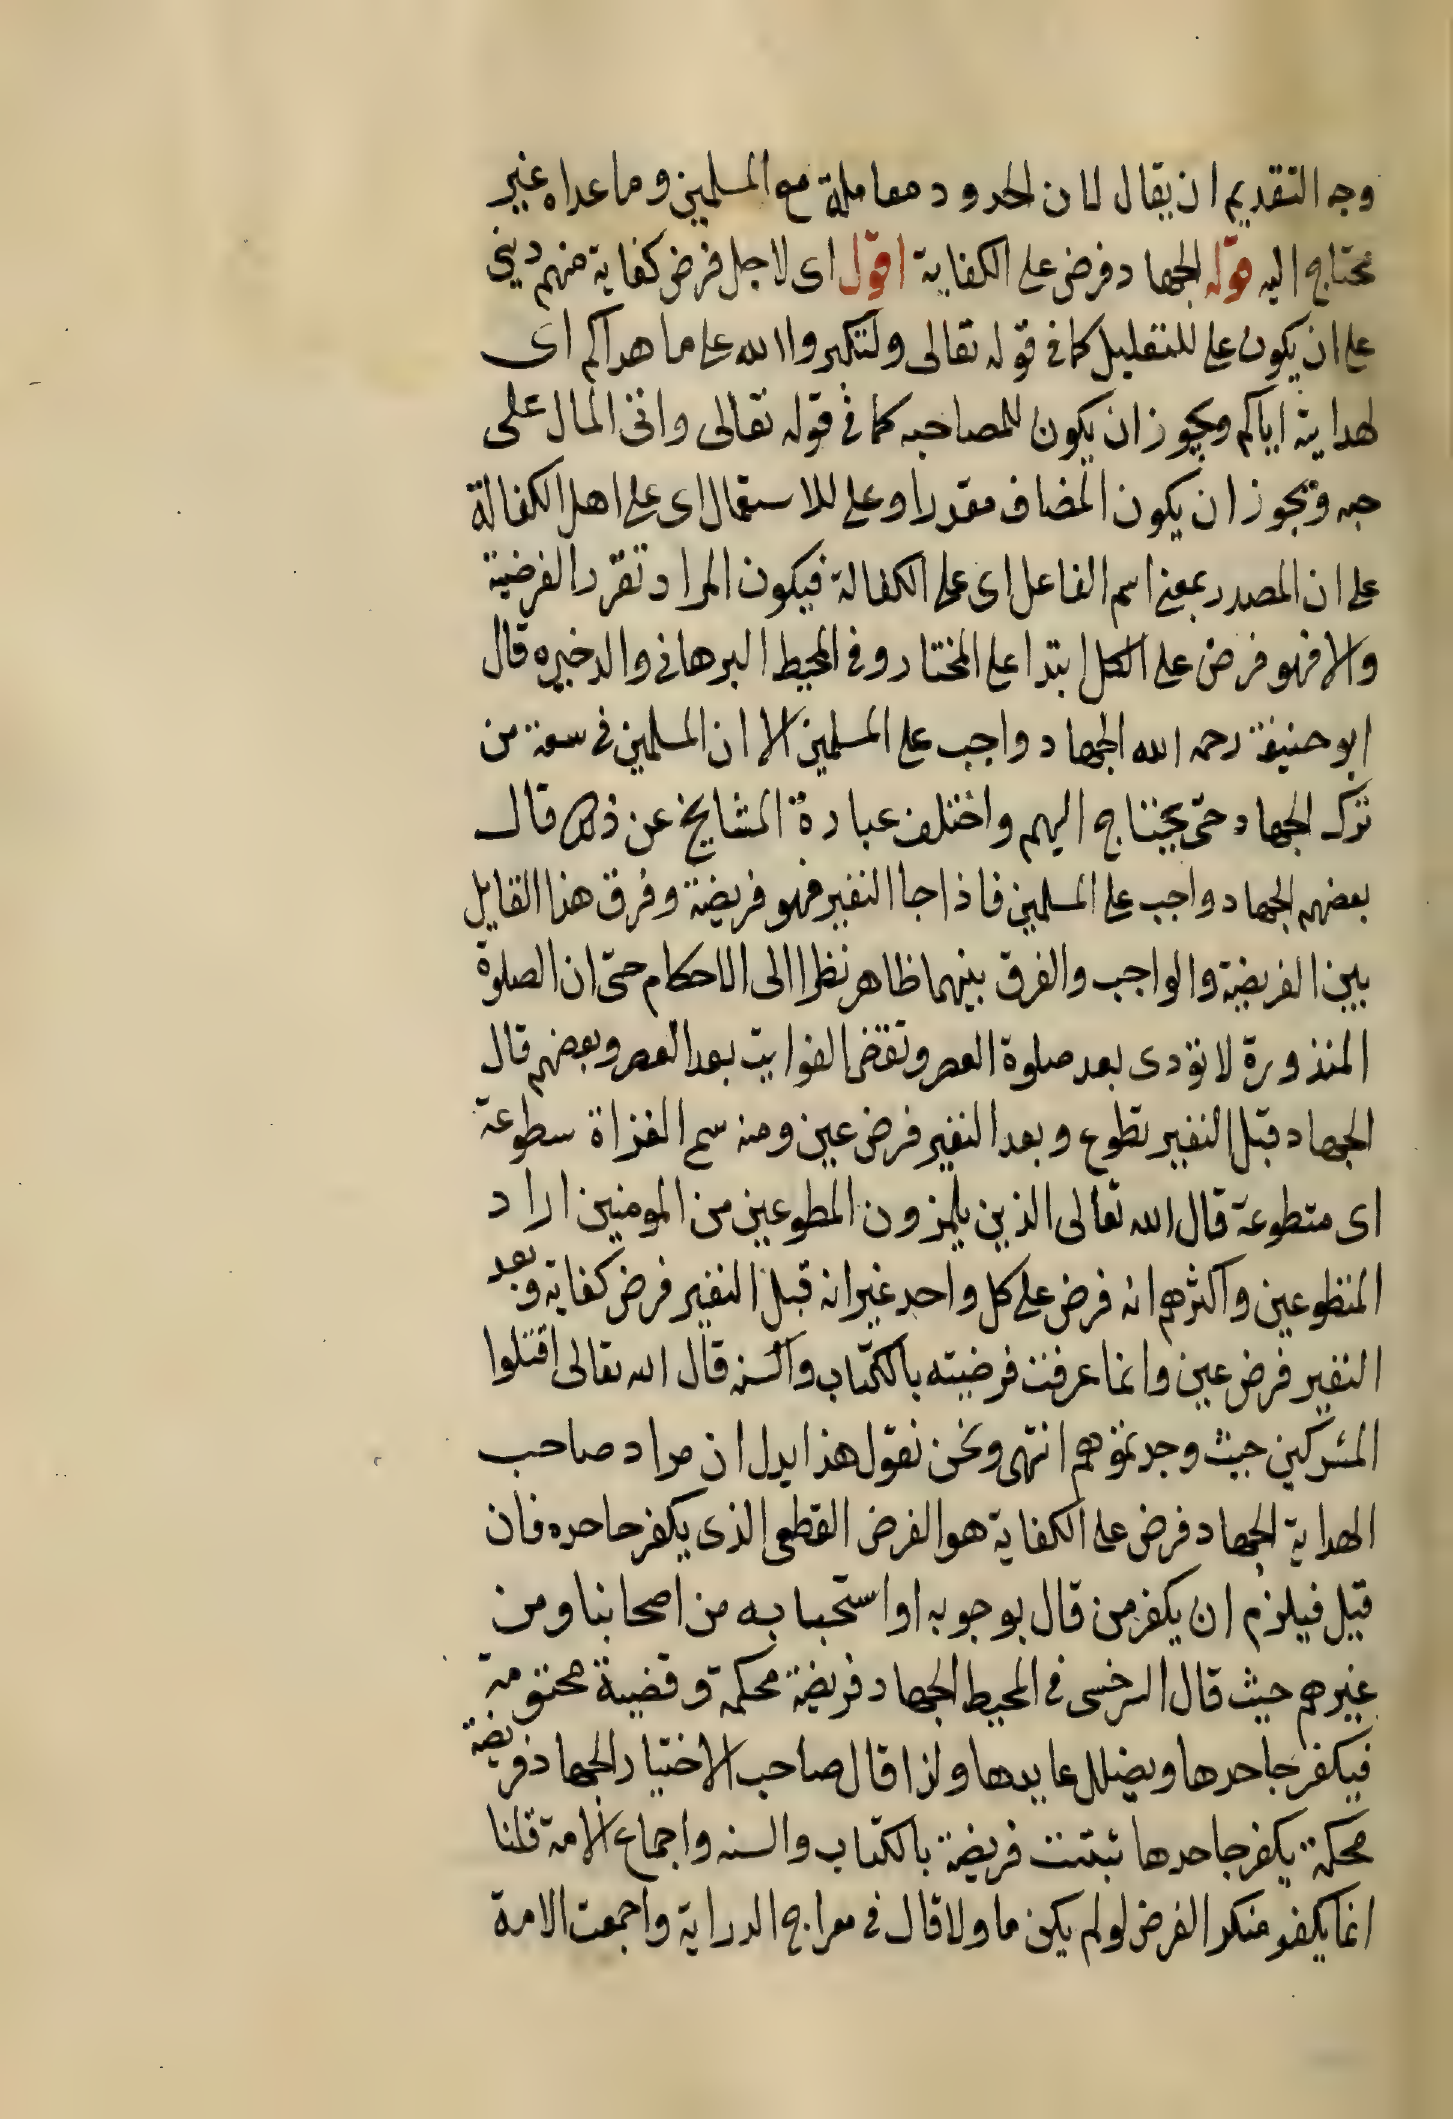 وجه التقديم ان يقال لان الحدود معاملة مع المسلمين وما عداه غير
محتاج اليه قوله الجهاد فرض على الكفاية اقول اى لاجل فرض كفاية منهم ديني
على ان يكون على للتعليل كما في قوله تعالى ولتكبروا الله على ما هداكم اى
لهدايته اياكم ويجوز ان يكون للمصاحبه كما في قوله تعالى واتى المال على
حبه ويجوز ان يكون المضاف مقدرا وعلى للاستعمال اى على اهل الكفالة
على ان المصدر بمعنى اسم الفاعل اى على الكفالة فيكون المراد تقرر الفرضية
والا فهو فرض على الكل ابتدا على المختار وفي المحيط البرهاني والدخيره قال
ابو حنيفة رحمه الله الجهاد واجب على المسلمين الا ان المسلمين في سعة من
ترك الجهاد حتى يحتاج اليهم واختلف عبارة المشايخ عن ذلك قال
بعضهم الجهاد واجب على المسلمين فاذا جا النفير فهو فريضة وفرق هذا القايل
بين الفريضة والواجب والفرق بينهما ظاهر نظرا الى الاحكام حتى ان الصلوة
المنذورة لا تؤدى بعد صلوة العصر وتقضى الفوايت بعد العصر وبعضهم قال
الجهاد قبل النفير تطوع وبعد النفير فرض عين ومنه سم الغزاة سطوعة
اى متطوعة قال الله تعالى الذين يلمزون المطوعين من المومنين اراد
المتطوعين واكثرهم انه فرض على كل واحد غير انه قبل النفير فرض كفاية وبعد
النفير فرض عين وانما عرفت فرضيته بالكتاب والسنه قال الله تعالى اقتلوا
المشركين حيث وجدتموهم انتهى ونحن نقول هذا يدل ان مراد صاحب
الهداية الجهاد فرض على الكفاية هو الفرض القطعي الذى يكفر جاحده فان
قيل فيلزم ان يكفر من قال بوجوبه او استحبابه من اصحابنا ومن
غيرهم حيث قال السرخسى في المحيط الجهاد فريضة محكمة وقضية محتومة
فيكفر جاحدها ويضلل عايدها ولذا قال صاحب الاختيار الجهاد فريضة
محكمة يكفر جاحدها ثبتت فريضة بالكتاب والسنه واجماع الامة قلنا
انما يكفر منكر الفرض لو لم يكن ماولا قال في معراج الدراية واجمعت الامة